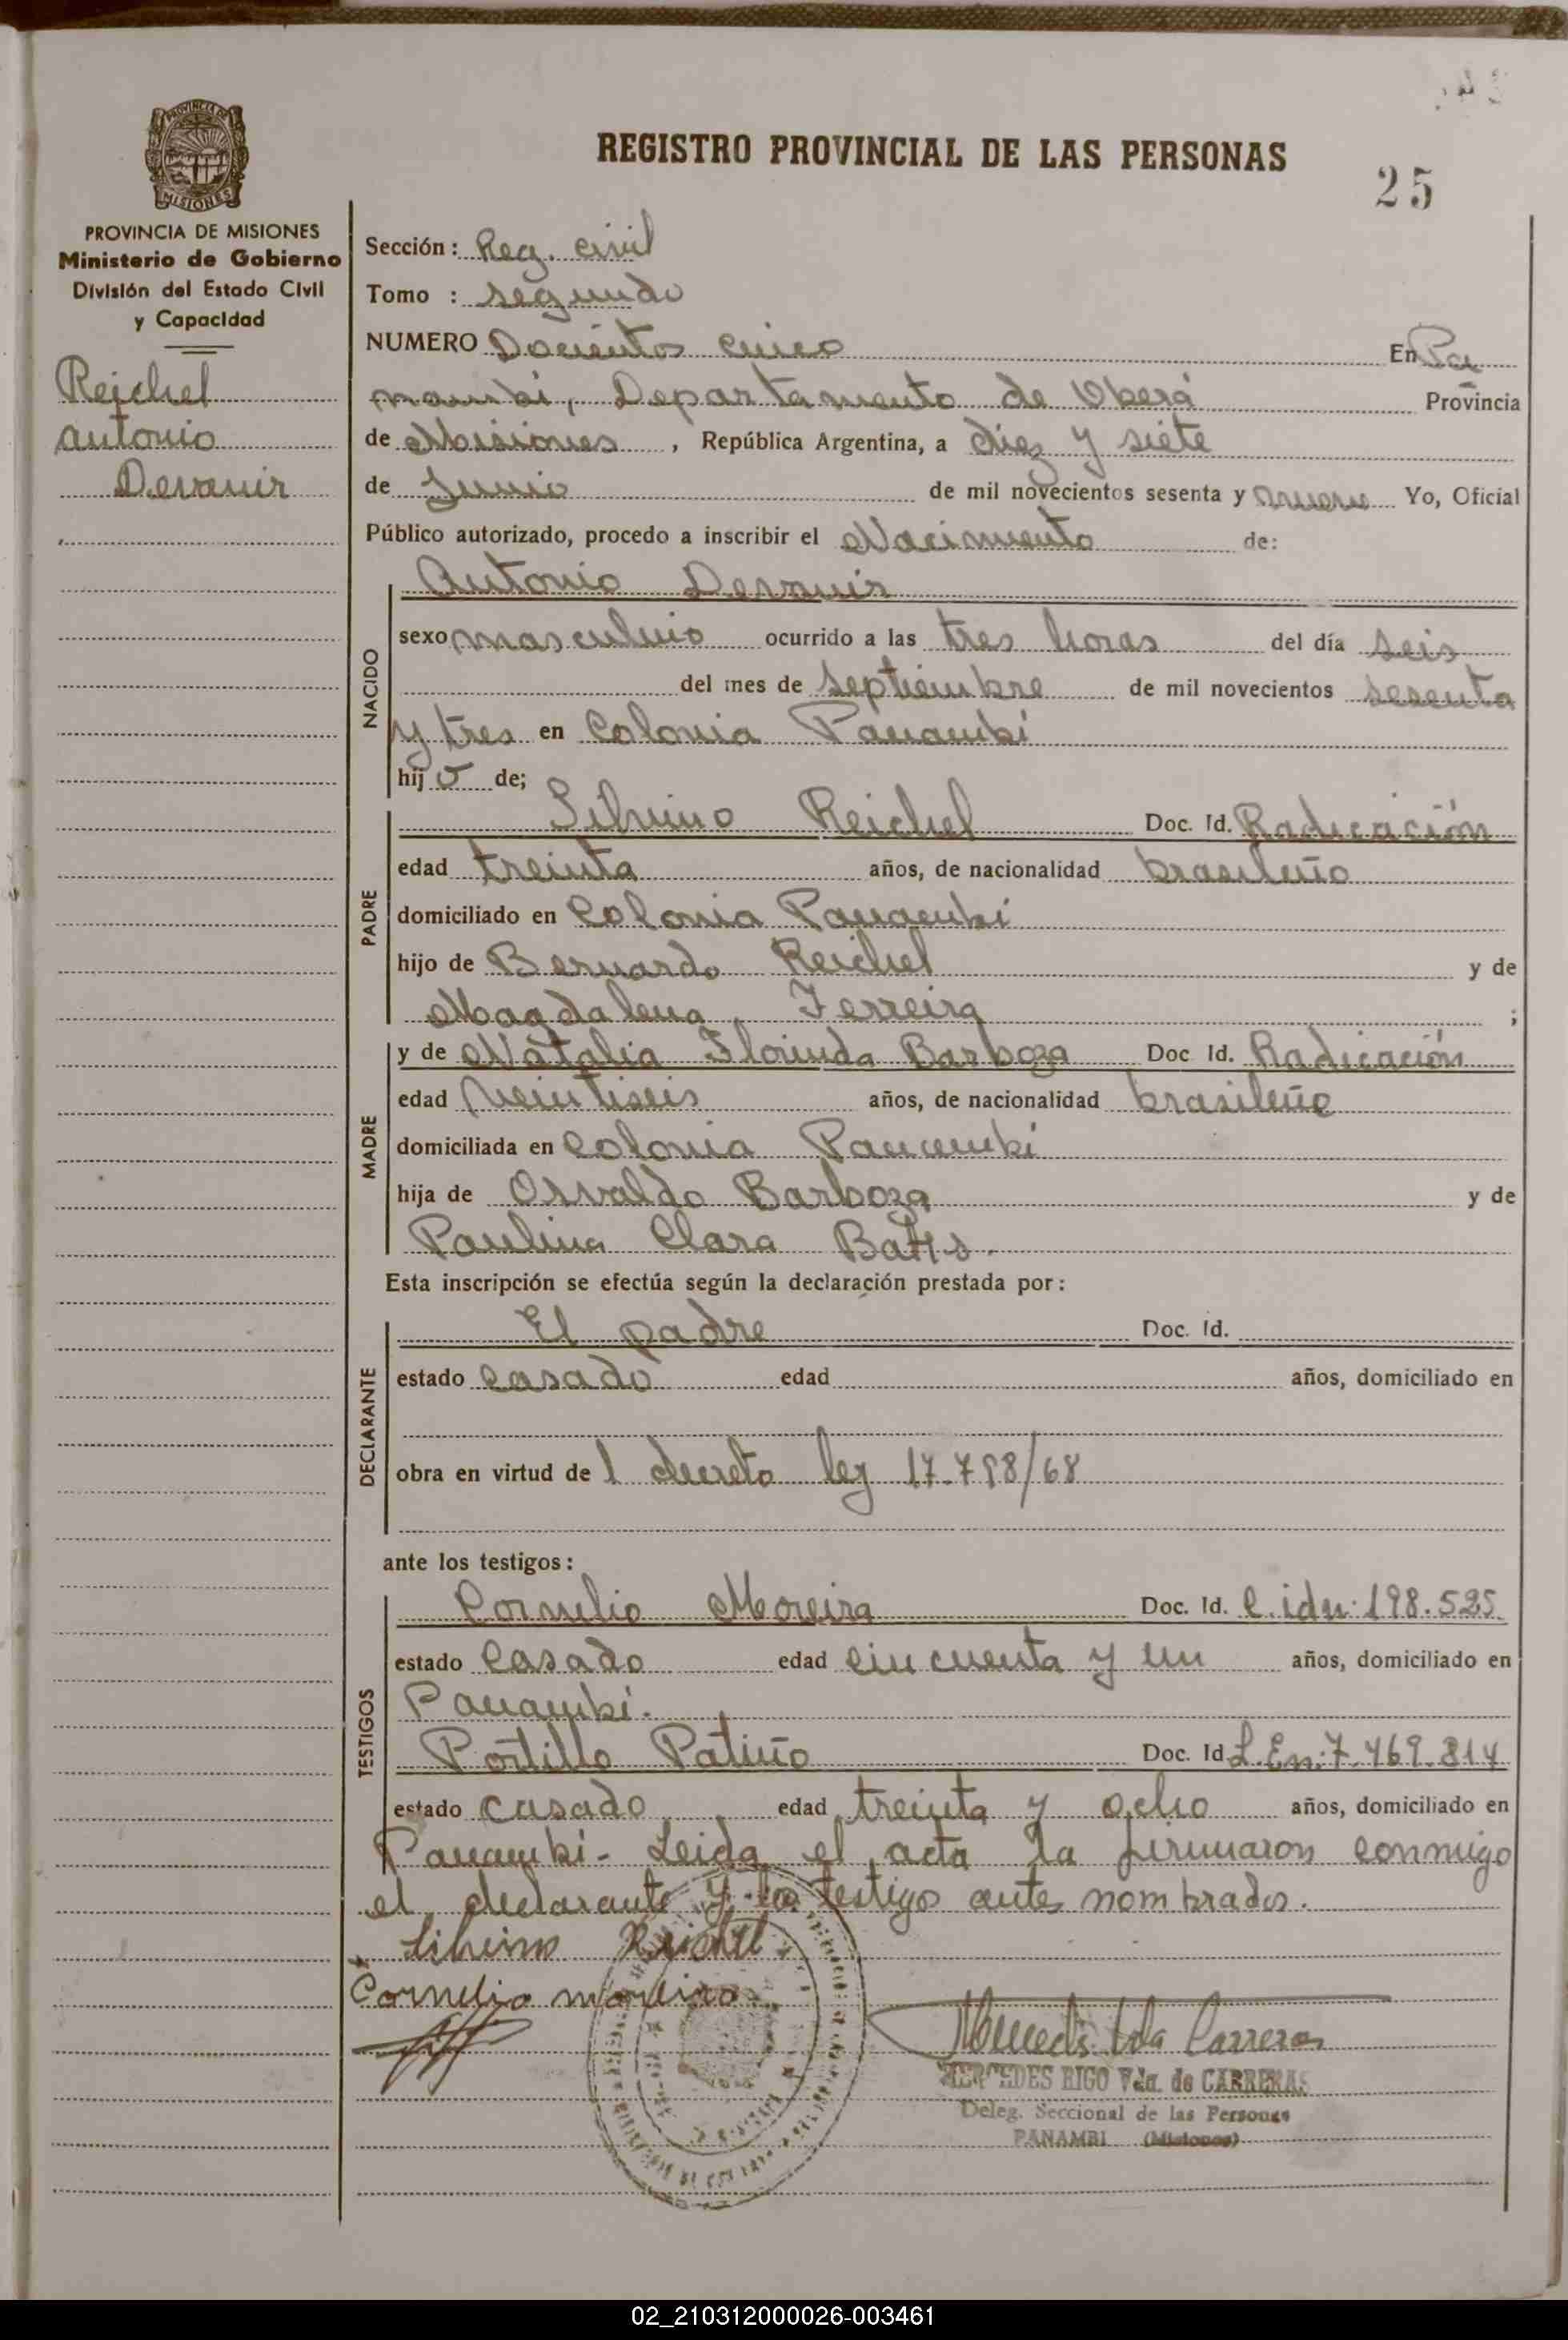 REGISTRO PROVINCIAL DE LAS PERSONAS
25
PROVINCIA DE
MISIONES
PROVINCIA DE MISIONES
Ministerio de Gobierno
División del Estado Civil
y Capacidad
Reichel
Antonio
Devanir
Sección: Reg. civil
Tomo : segundo
NUMERO Docientos cinco En Pa
nambí, Departamento de Oberá Provincia
de Misiones, República Argentina, a diez y siete
de Junio de mil novecientos sesenta y nueve Yo, Oficial
Público autorizado, procedo a inscribir el Nacimiento de:
NACIDO
Antonio Devanir
sexo masculino ocurrido a las tres horas del día seis
del mes de septiembre de mil novecientos sesenta
y tres en Colonia Panambí
hijo de;
PADRE
Silvino Reichel Doc. Id. Radicación
edad treinta años, de nacionalidad brasileño
domiciliado en Colonia Panambí
hijo de Bernardo Reichel y de
Magdalena Ferreira ;
MADRE
y de Natalia Florinda Barboza Doc Id. Radicación
edad veintiseis años, de nacionalidad brasileño
domiciliada en Colonia Panambí
hija de Osvaldo Barboza y de
Paulina Clara
Esta inscripción se efectúa según la declaración prestada por:
DECLARANTE
El padre Doc. Id.
estado casado edad años, domiciliado en
obra en virtud del decreto ley 17.798/68
ante los testigos:
TESTIGOS
Cornelio Moreira Doc. Id. C. iden. 198.525
estado casado edad cincuenta y un años, domiciliado en
Panambí.
Portillo Patiño Doc. Id L.En: 7.469.814
estado casado edad treinta y ocho años, domiciliado en
Panambí - Leida el acta la firmaron conmigo
el declarante y los testigo antes nombrados.
Silvino Reichel
Cornelio moreira
MERCEDES RIGO Vda. de CARRERAS
Deleg. Seccional de las Personas
PANAMBI (Misiones)
02_210312000026-003461